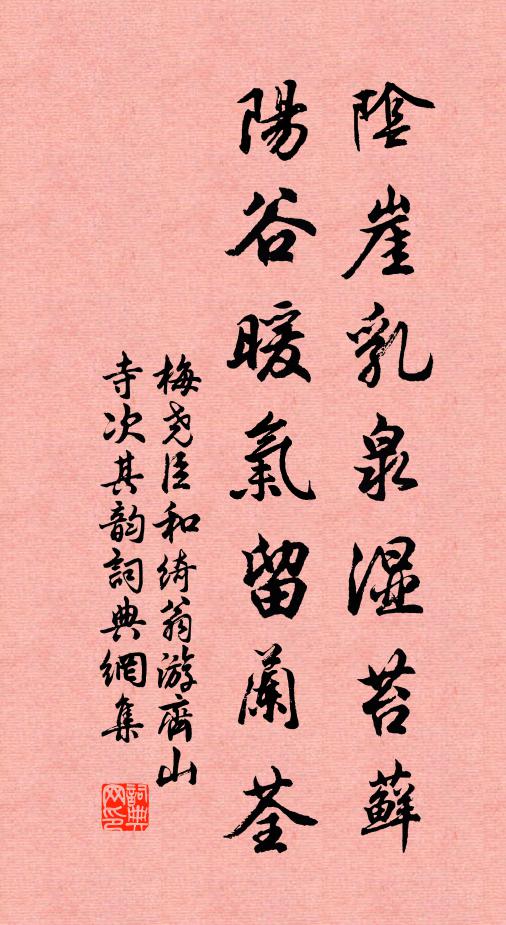 陰崖乳泉濕苔蘚
陽谷暖氣留蘭荃
梅堯臣和綺翁游齊山
寺次其韵詞典網集
詞典網印